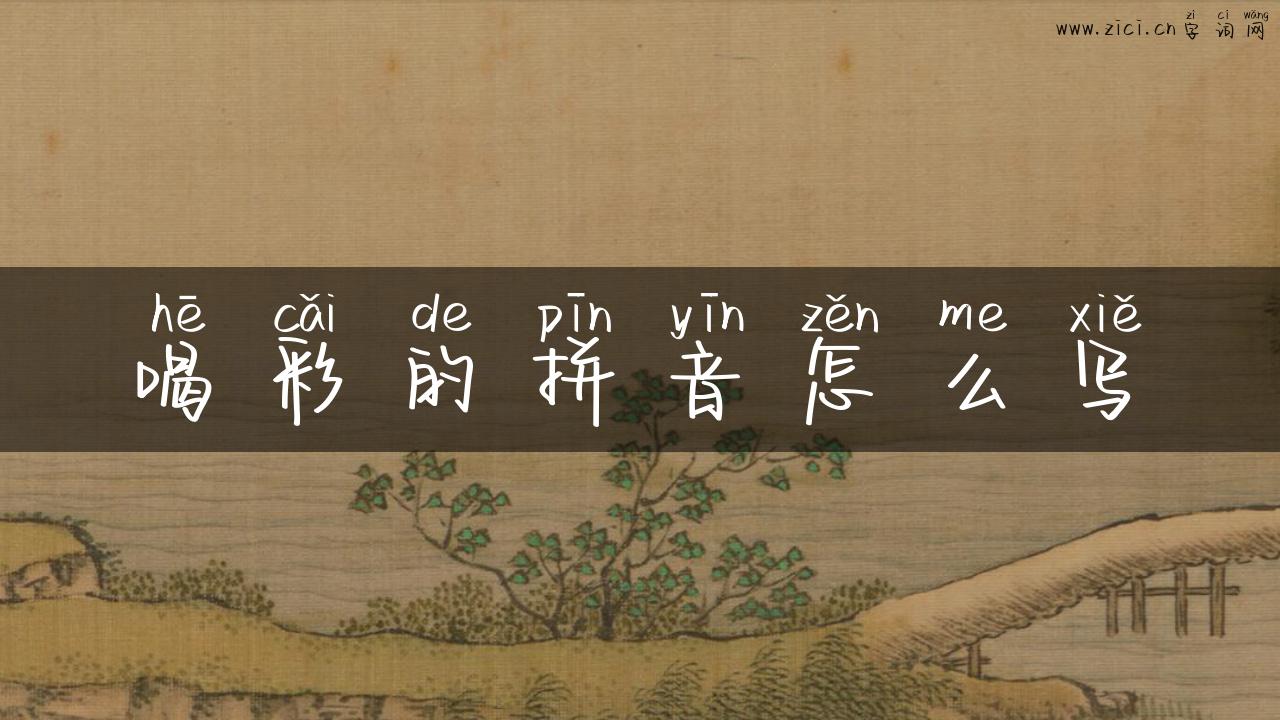 zì cí wǎng
www.zici.cn 字词网
hē cǎi de pīn yīn zěn me xiě
喝彩的拼音怎么写